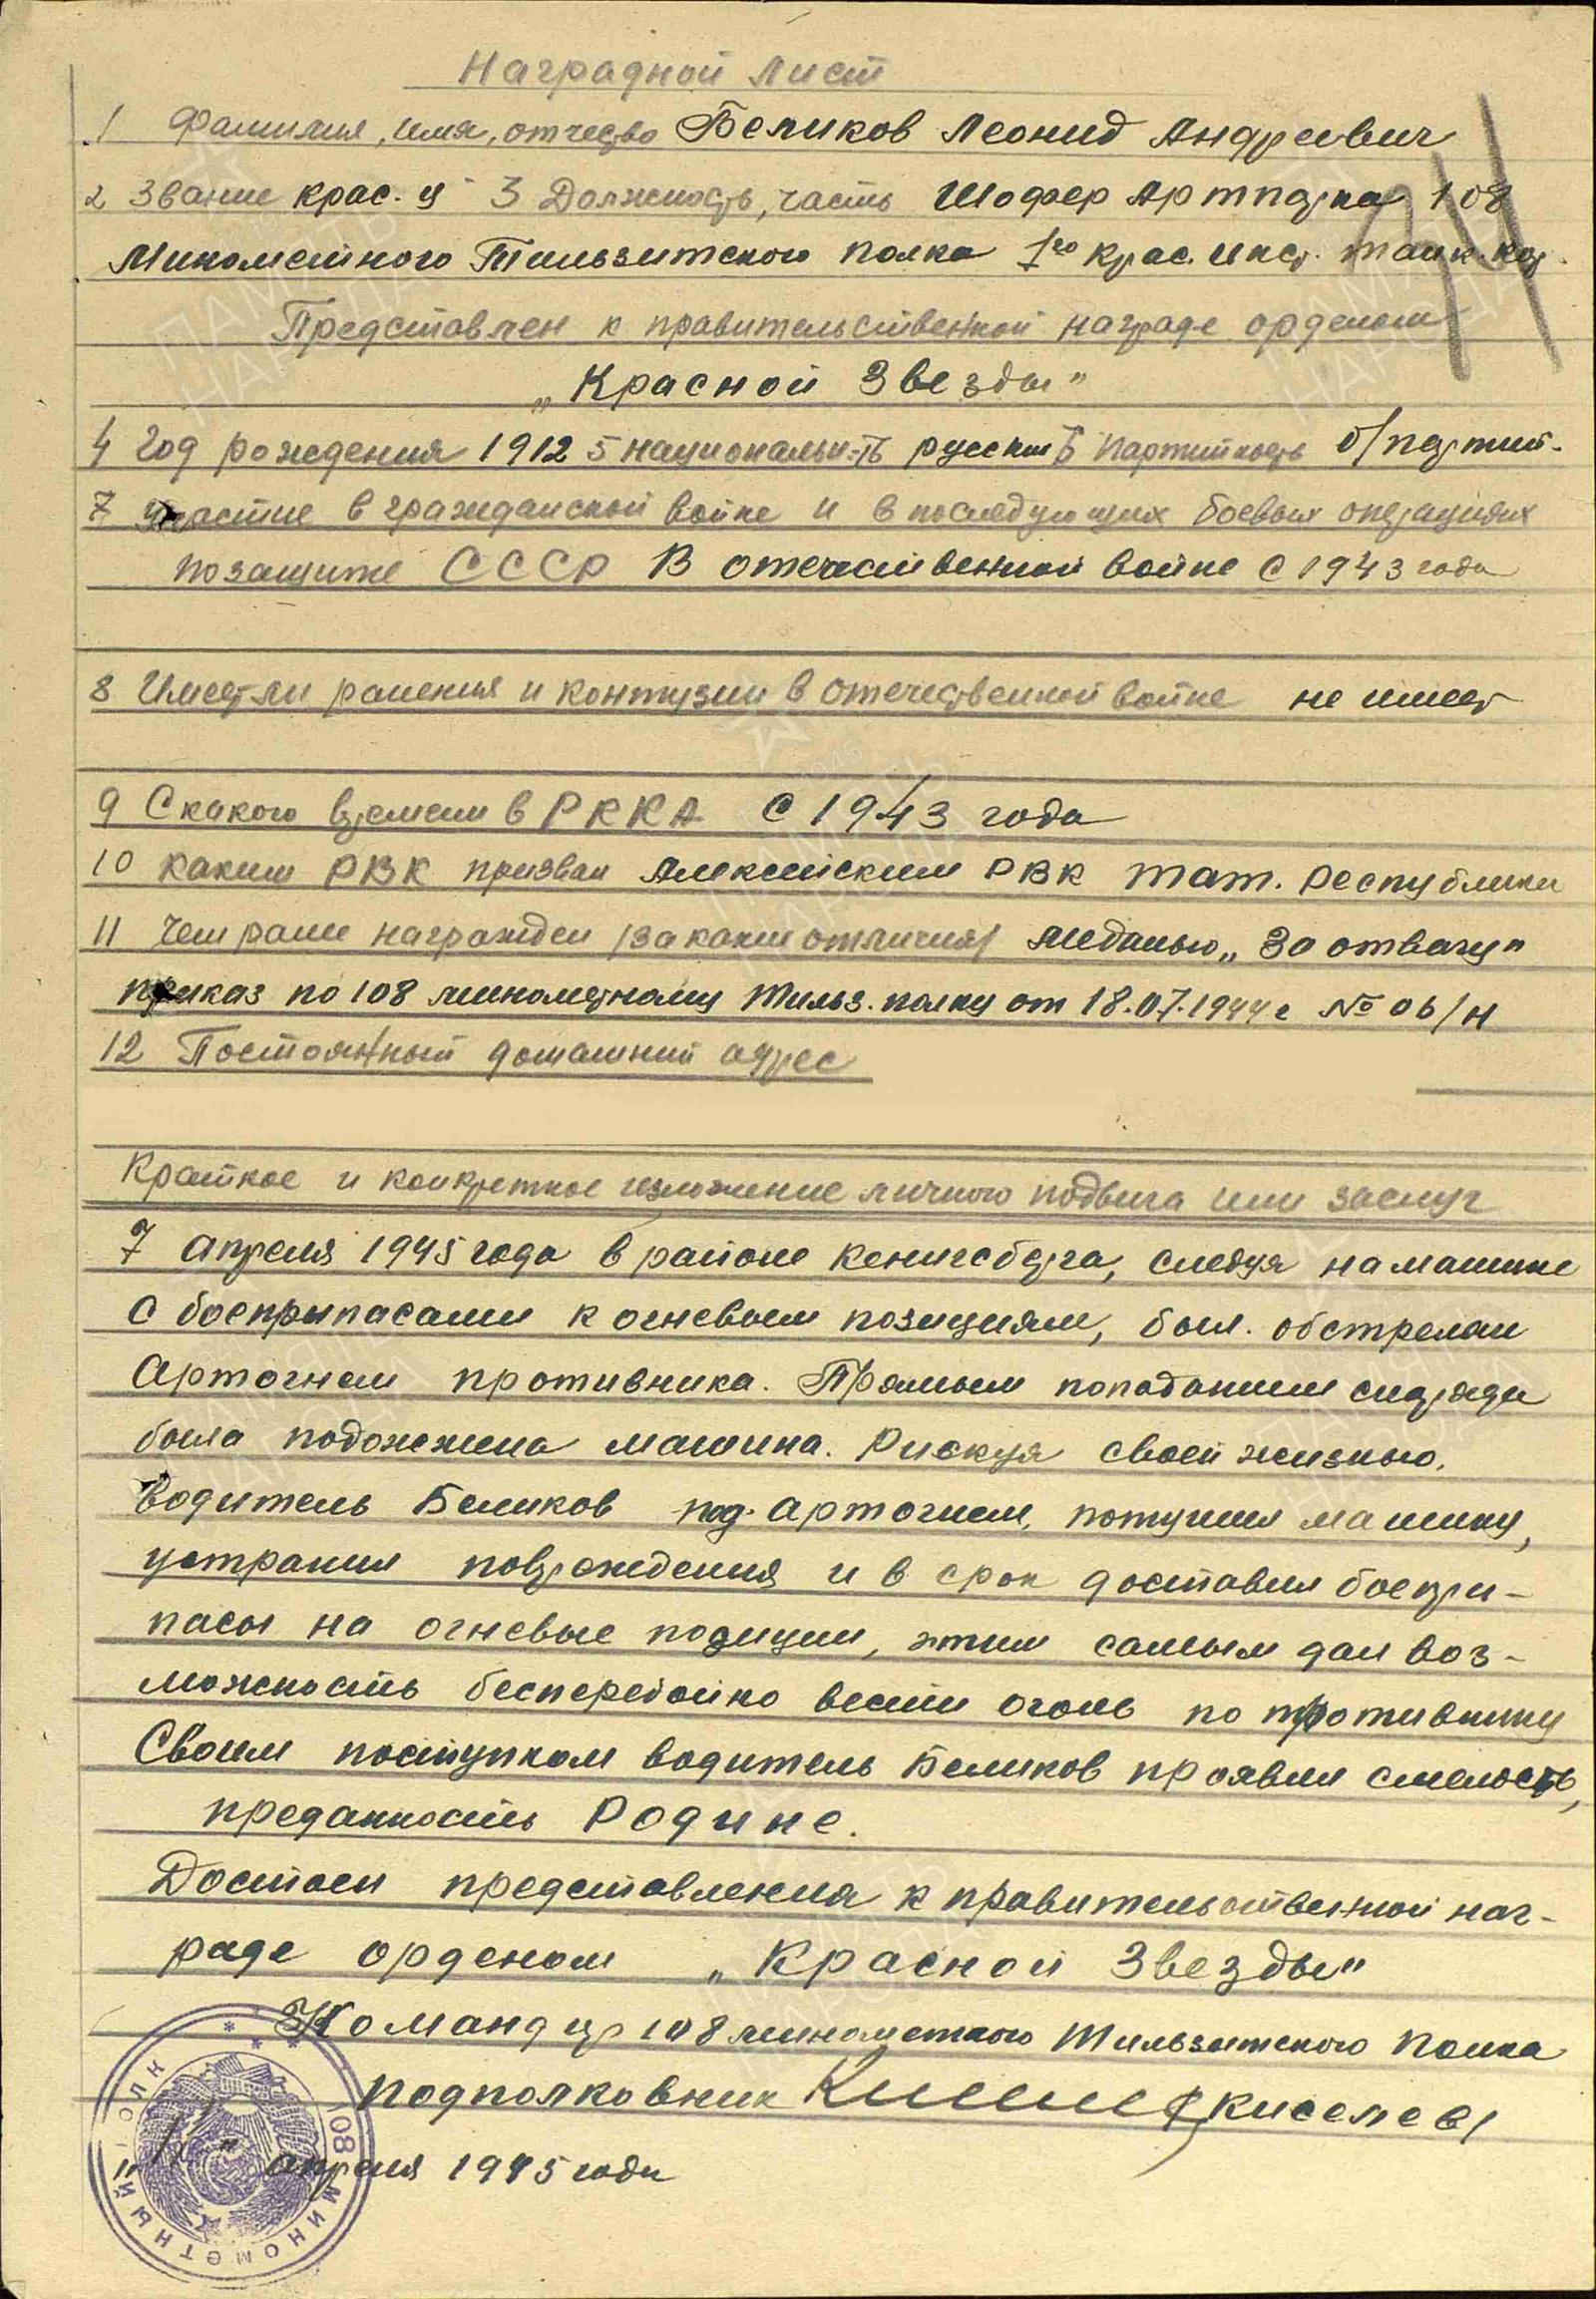 Наградной лист
1 Фамилия, имя, отчество Беликов Леонид Андреевич
2 Звание крас. ц 3 Должность, часть Шофер Артпарка 108
Минометного Тильзитского полка 1го крас. инст. танк. кор.
Представлен к правительственной награде орденом
„Красной Звезды"
4 Год рождения 1912 5 национальн-ть русский 6 Партийность б/партий.
7 участие в гражданской войне и в последующих боевых операциях
по защите СССР В отечественной войне с 1943 года
8 Имеет ли ранения и контузии в отечественной войне не имеет
9 С какого времени в РККА С 1943 года
10 каким РВК призван РВК Тат. Республики
11 Чем ранее награжден /за какие отличия/ медалью „За отвагу"
приказ по 108 минометному Тильз. полку от 18.07.1944 г № 06/н
12 Постоянный домашний адрес
Краткое и конкретное изложение личного подвига или заслуг
7 апреля 1945 года в районе Кенигсберга, следуя на машине
с боеприпасами к огневым позициям, был обстрелян
Артогнем противника. Прямым попаданием снаряда
была подожжена машина. Рискуя своей жизнью,
водитель Беликов под артогнем, потушил машину,
устранил повреждения и в срок доставил боепри-
пасы на огневые позиции, этим самым дал воз-
можность бесперебойно вести огонь по противнику
Своим поступком водитель Беликов проявил смелость,
преданность Родине.
Достоен представления к правительственной наг-
раде орденом „Красной Звезды"
Командир 108 минометного Тильзитского полка
подполковник /Киселев/
апреля 1945 года
108 МИНОМЕТНЫЙ ПОЛК
ПАМЯТЬ НАРОДА